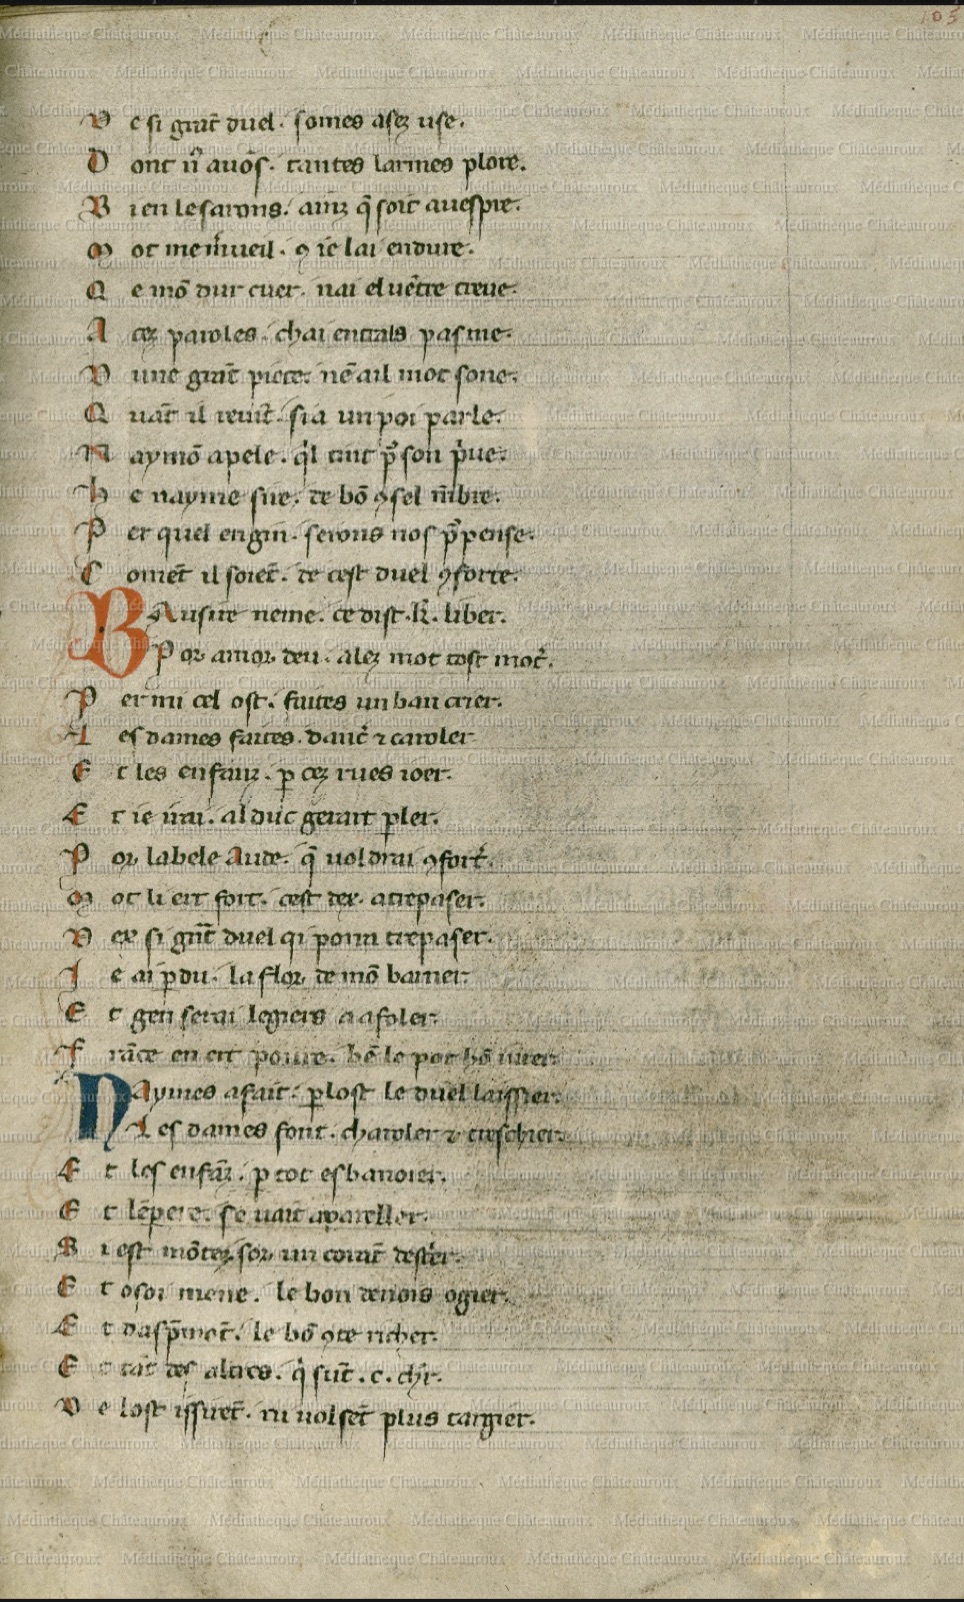 103
D e si grāt duel. somes asez use.
D ont n̄ auōs. tantes larmes plore.
B ien le sarons. ainz q̄ soit auespre.
M ot me m̄ueil. ꝯ ie lai endure.
Q e mō dur cuer. nai el uētre creue.
A cez paroles. chai entrals pasme.
D une grāt piece. nē a il mot sone.
Q uāt il reuīt. si a un poi parle.
N aymō apele. q̍l tint p̄s son p̍ue.
h e nayme sire. de bō ꝯsel m̄bre.
P er quel engin. serons nos p̄pense.
C omēt il soiēt. de cest duel ꝯforte.
B Ausire neme. ce dist .K̄. liber.
P or amor deu. alez mot tost mōt̄.
P er mi cel ost. faites un ban crier.
L es dames faites. danc̄ ⁊ caroler
E t les enfanz. ꝑ cez rues ioer.
E t ie irai. al duc gerart ꝑler.
P or la bele Aude. q̄ uoldrai ꝯfort̄.
M ot li ert fort. cest der. a trepaser.
D er si grāt duel qi poira trepaser.
I e ai ꝑdu. la flor de mō barner.
E t gen serai legiers a afoler.
F rāce en ert poure. bē le pot hō iurer.
N Aymes a fait. ꝑ lost le duel laissier.
L es dames font. charoler ⁊ treschier.
E t les enfāz. ꝑ tot esbanoier.
E t lēpere. se uait apareller.
B i est mōtez sor un corāt dest̄er.
E t o soi mene. le bon denois ogier.
E t daspremōt. le bō ꝯte richer.
E t tāt des altres. q̍ sūt .c. chr̄.
D e lost issirēt. ni uolsēt plus targier.